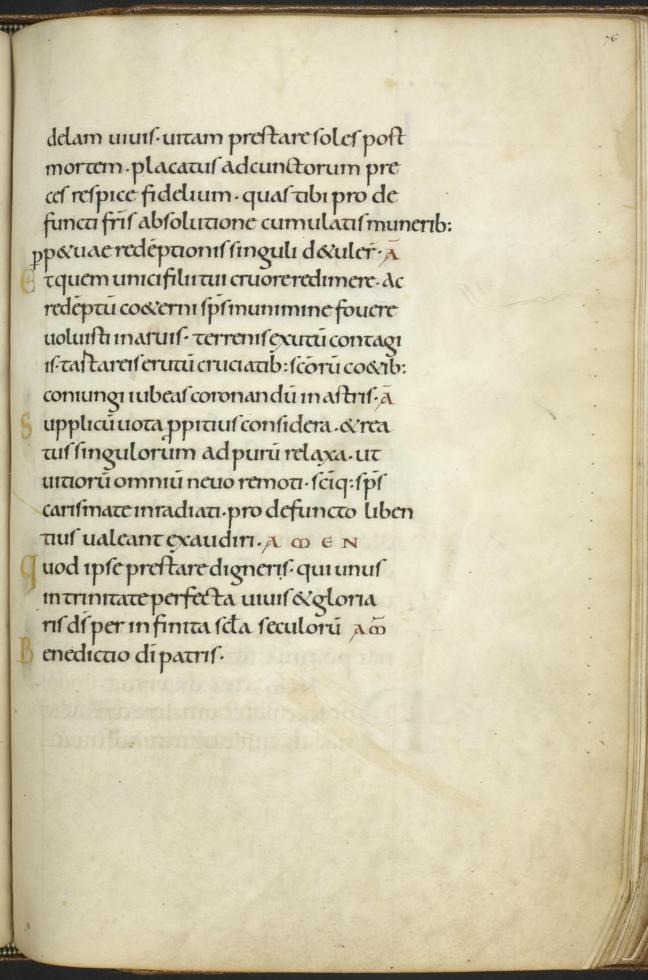 76
delam uiuis· uitam prestare soles post
mortem· placatus adcunctorum pre
ces respice fidelium· quas tibi pro de
functi fr̄is absolutione cumulatis munerib:
ꝓp&uae redēptionis singuli d&uler̄· Ā
Et quem unici filii tui cruore redimere· ac
redēptū co&erni sp̄s munimine fouere
uoluisti in aruis· terrenis exutū contagi
is· tastareis erutū cruciatib: sc̄orū co&ib:
coniungi iubeas coronandū in astris· Ā
Supplicū uota ꝓpitius considera· & rea
tus singulorum ad purū relaxa· ut
uitiorū omniū neuo remoti· sc̄iq: sp̄s
carismate inradiati· pro defuncto liben
tius ualeant exaudiri· A M E N
Quod ipse prestare digneris· qui unus
in trinitate perfecta uiuis & gloria
ris ds̄ per infinita sc̄la seculorū AM̄
Benedictio dī patris·